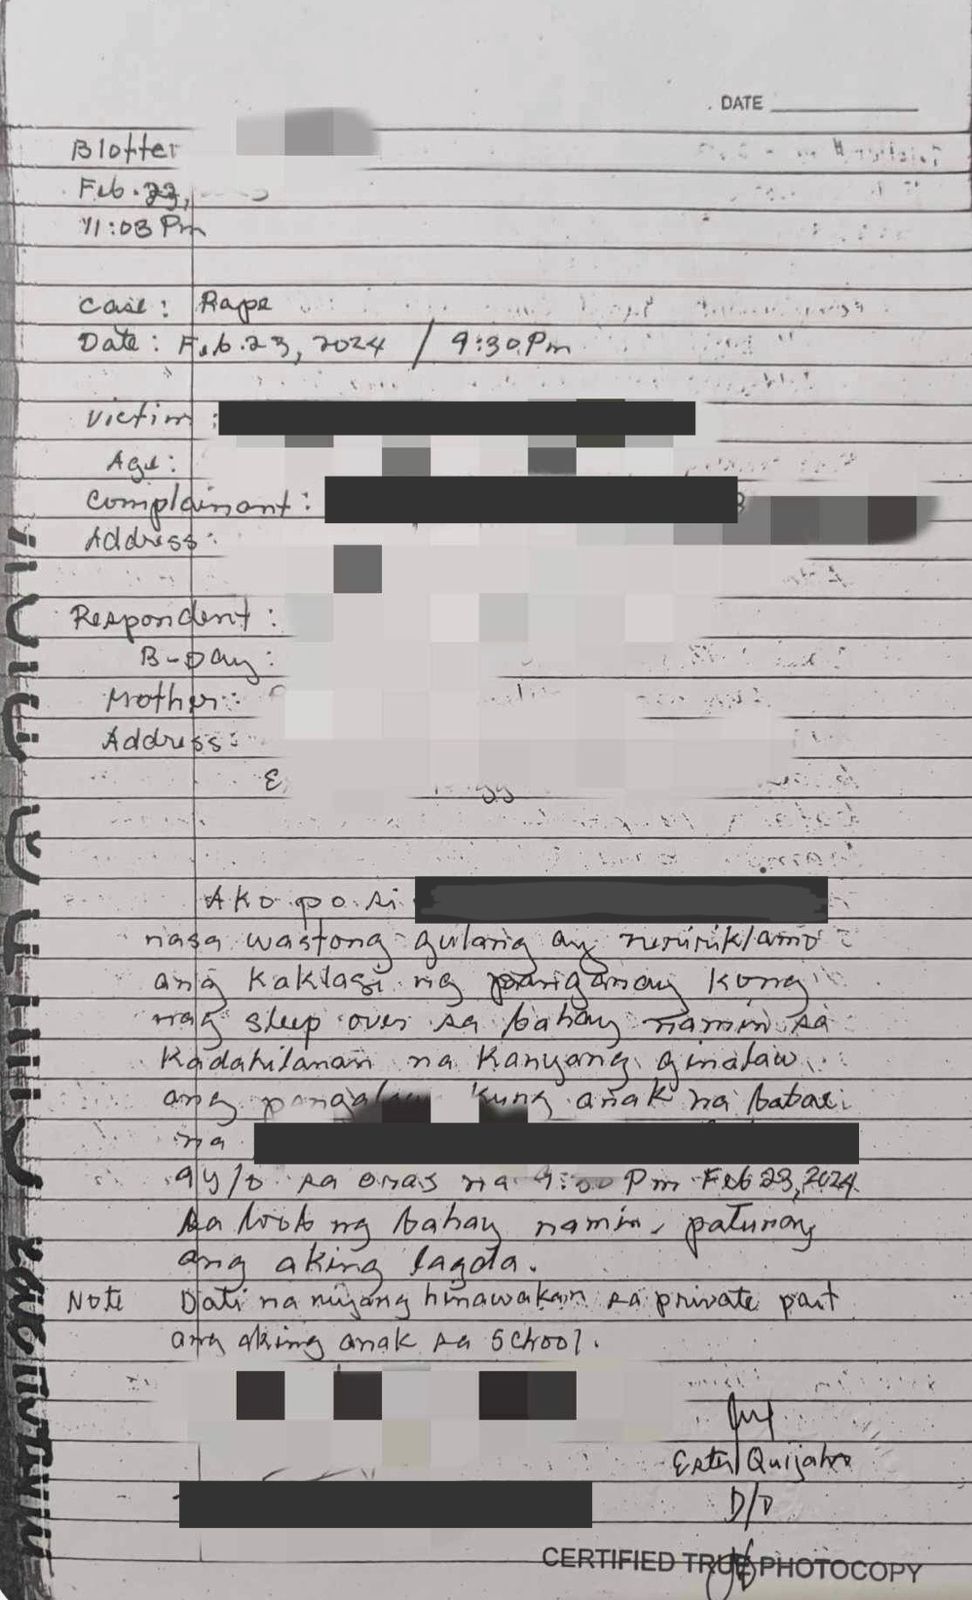 DATE
Blotter
Feb. 23,
11:03 Pm
Case: Rape
Date: Feb. 23, 2024 / 9:30 Pm
Victim:
Age:
Complainant:
Address:
Respondent:
B-Day:
Mother:
Address:
Ako po si
nasa wastong gulang ay
ang kaklasi ng panganay kong
nag sleep over sa bahay namin sa
kadahilanan na kanyang ginalaw
ang kung anak na babae
na
9y/o sa oras na Pm Feb 23, 2024
sa loob ng bahay namin, patunay
ang aking lagda.
Note Dati na niyang hinawakan sa private part
ang aking anak sa School.
Ester
D/O
CERTIFIED TRUE PHOTOCOPY